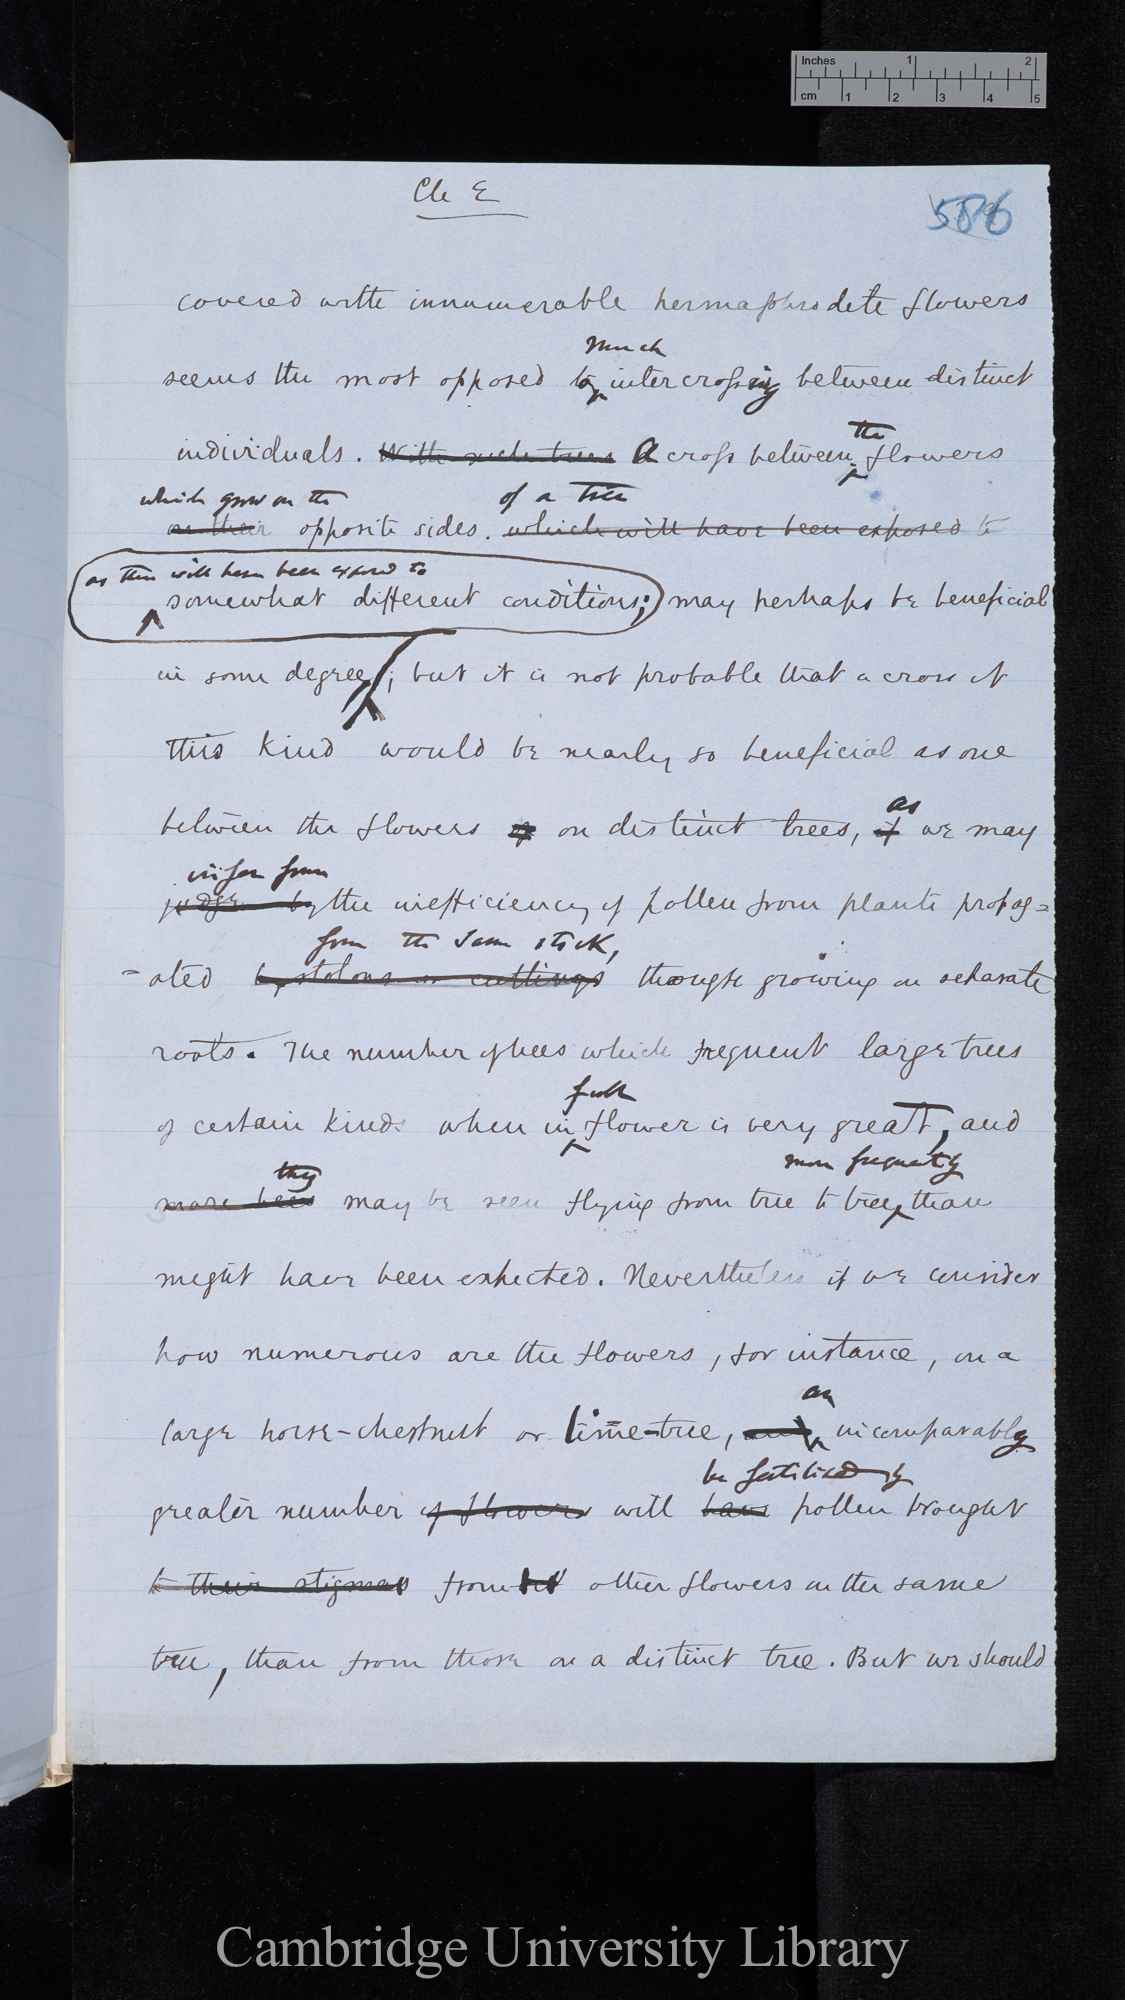 Inches 1 2
cm 1 2 3 4 5
Ch E
586
covered with innumerable hermaphrodite flowers
much
seems the most opposed to intercrossing between distinct
the
individuals. With such trees A cross between flowers
which grow on the of a tree
on their opposite sides. which will have been exposed to
as these will have been exposed to
somewhat different conditions; may perhaps be beneficial
in some degree; but it is not probable that a cross of
this kind would be nearly so beneficial as one
as
between the flowers of on distinct trees, if we may
infer from
judge by the inefficiency of pollen from plants propag=
from the same stock,
-ated by stolons or cuttings though growing on separate
roots. The number of bees which frequent large trees
full
of certain kinds when in flower is very great, and
they more frequently
more bees may be seen flying from tree to tree than
might have been expected. Nevertheless if we consider
how numerous are the flowers, for instance, on a
an
large horse-chestnut or lime-tree, and incomparably
be fertilised by
greater number of flowers will have pollen brought
to their stigmas from other flowers on the same
tree, than from those on a distinct tree. But we should
Cambridge University Library